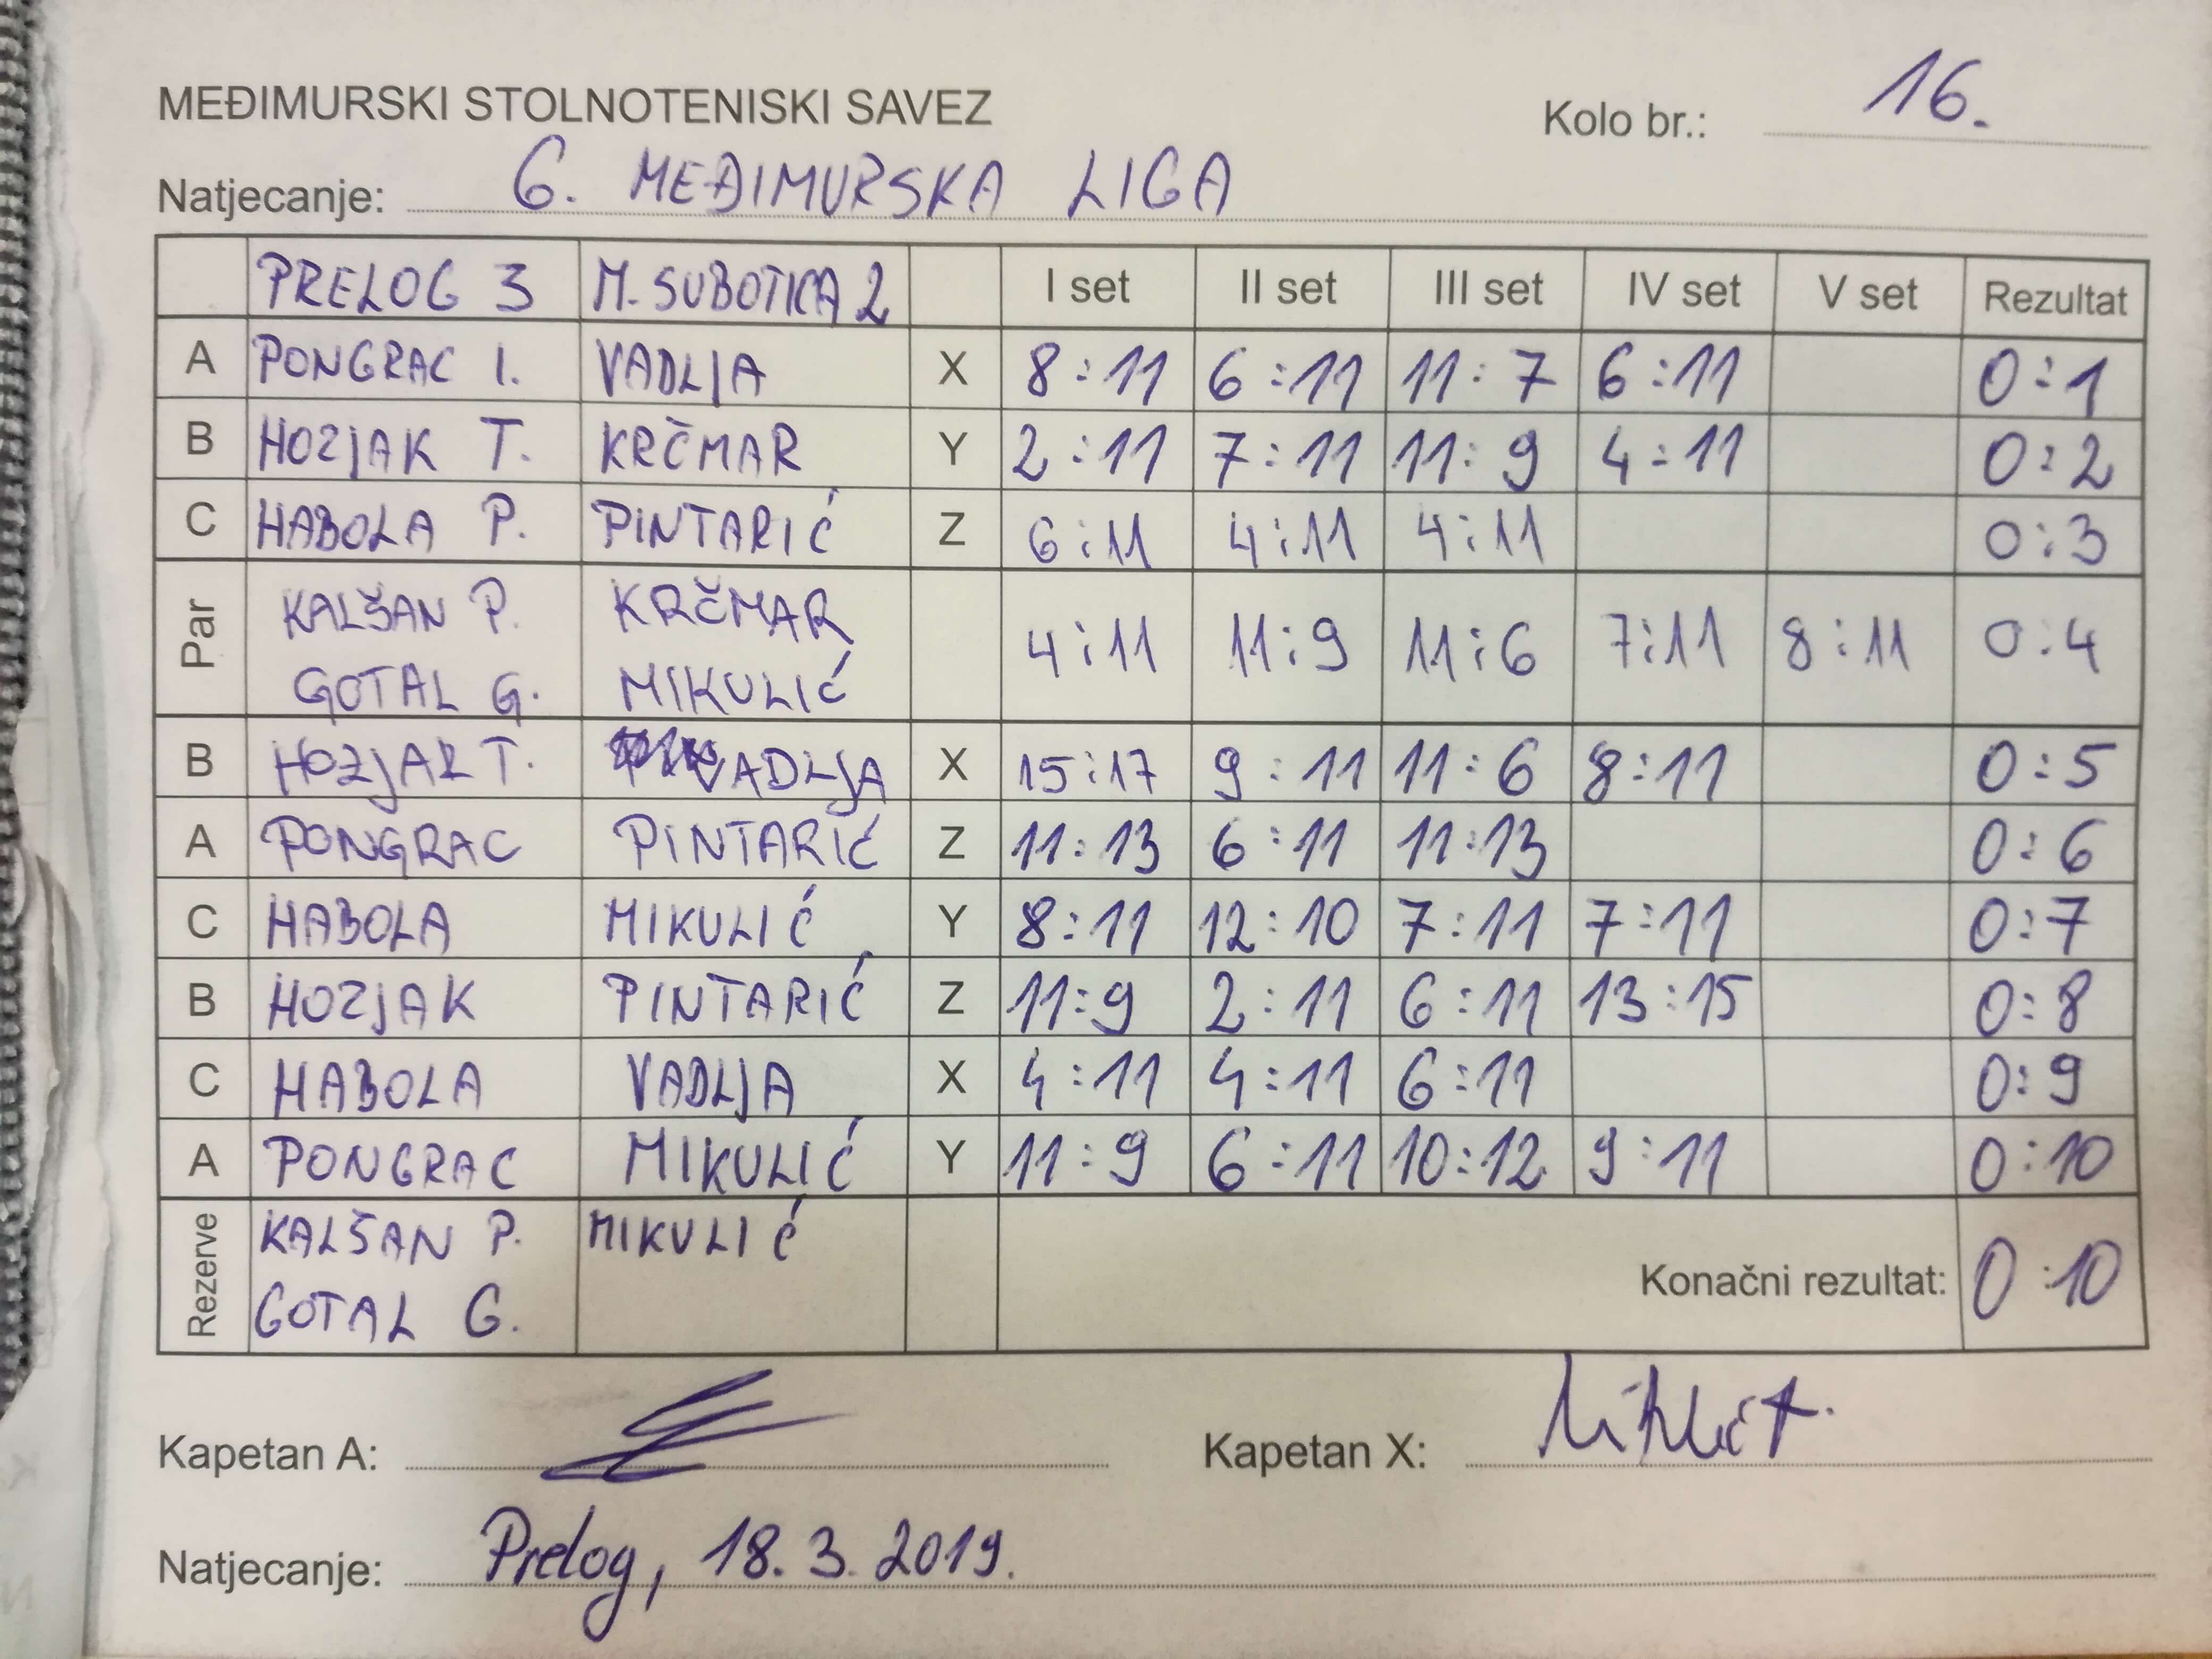 MEĐIMURSKI STOLNOTENISKI SAVEZ
Kolo br.: 16.
Natjecanje: 6. MEĐIMURSKA LIGA
PRELOG 3 M. SUBOTICA 2 I set II set III set IV set V set Rezultat
A PONGRAC I. VADLJA X 8:11 6:11 11:7 6:11 0:1
B HOZJAK T. KRČMAR Y 2:11 7:11 11:9 4:11 0:2
C HABOLA P. PINTARIĆ Z 6:11 4:11 4:11 0:3
Par KALŠAN P. KRČMAR 4:11 11:9 11:6 7:11 8:11 0:4
GOTAL G. MIKULIĆ
B HOZJAK T. VADLJA X 15:17 9:11 11:6 8:11 0:5
A PONGRAC PINTARIĆ Z 11:13 6:11 11:13 0:6
C HABOLA MIKULIĆ Y 8:11 12:10 7:11 7:11 0:7
B HOZJAK PINTARIĆ Z 11:9 2:11 6:11 13:15 0:8
C HABOLA VADLJA X 4:11 4:11 6:11 0:9
A PONGRAC MIKULIĆ Y 11:9 6:11 10:12 9:11 0:10
Rezerve KALŠAN P. MIKULIĆ
GOTAL G.
Konačni rezultat: 0:10
Kapetan A:
Kapetan X:
Natjecanje: Prelog, 18. 3. 2019.